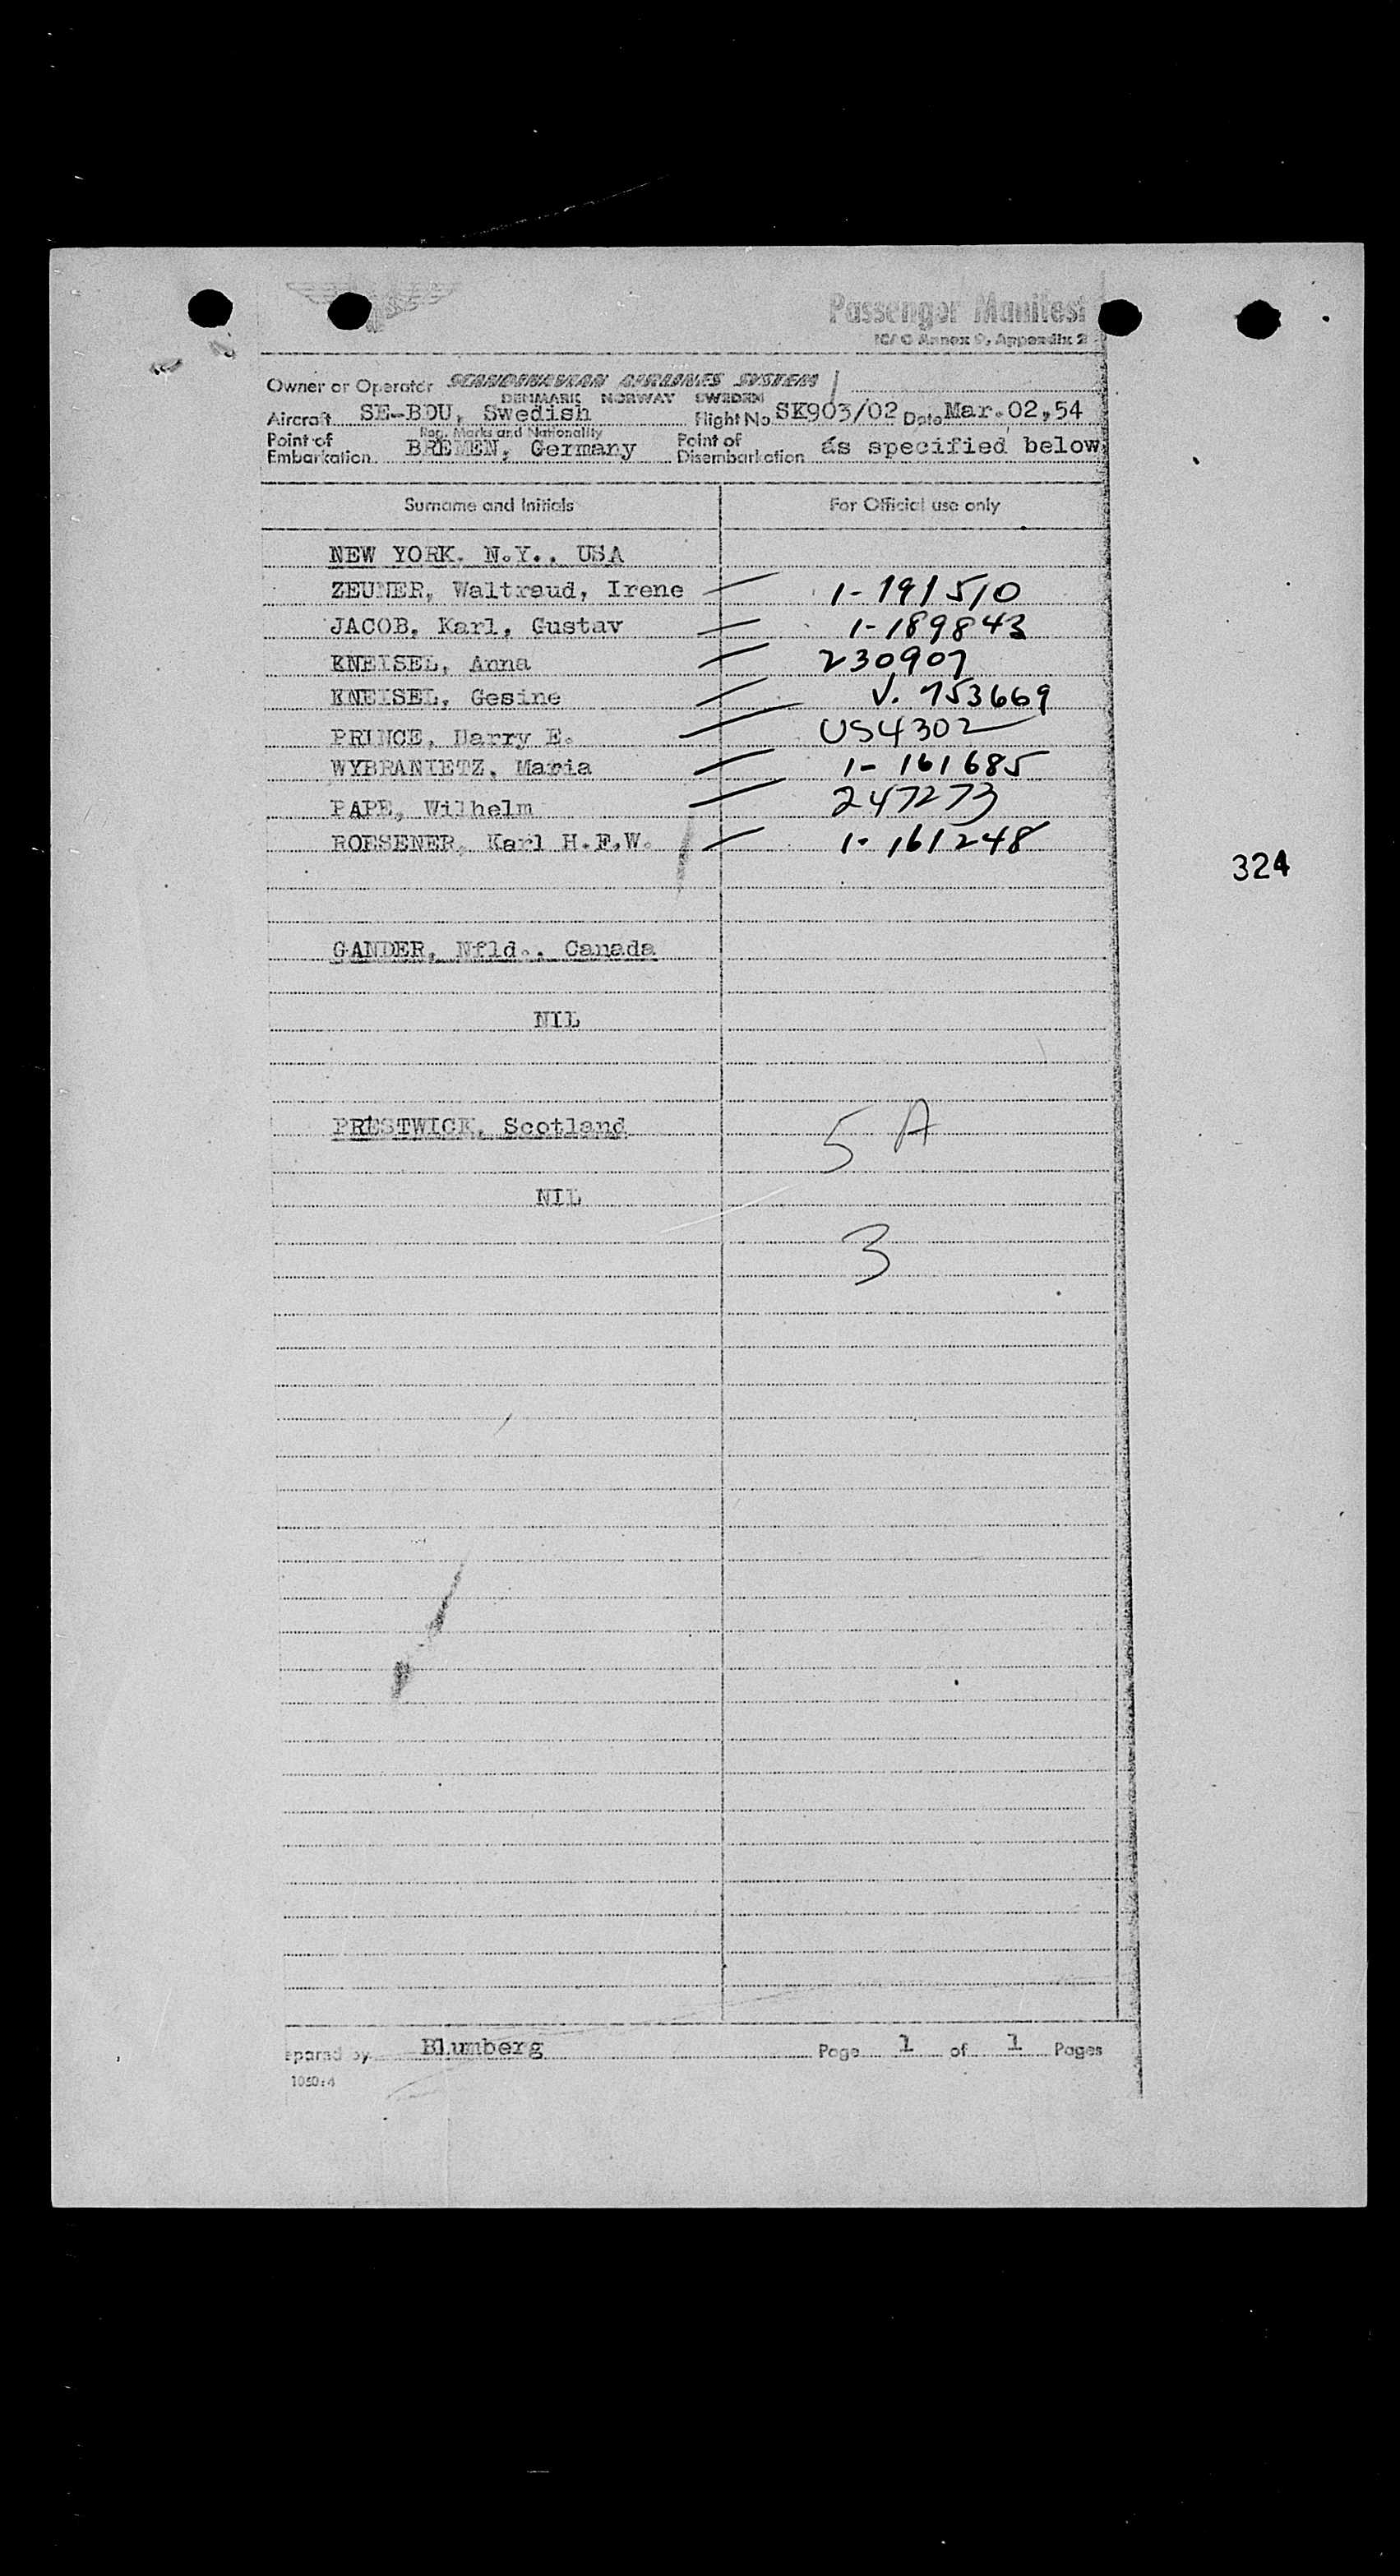 SAS
Passenger Manifest
ICAO Annex 9, Appendix 2
Owner or Operator SCANDINAVIAN AIRLINES SYSTEM
DENMARK NORWAY SWEDEN
Aircraft SE-BDU, Swedish Flight No SK903/02 Date Mar.02,54
Reg. Marks and Nationality
Point of Embarkation BREMEN, Germany Point of Disembarkation as specified below
Surname and Initials For Official use only
NEW YORK. N.Y., USA
ZEUNER, Waltraud, Irene 1-191510
JACOB, Karl, Gustav 1-189843
KNEISEL, Anna 230907
KNEISEL, Gesine V. 753669
PRINCE, Harry E. US4302
WYBRANIETZ, Maria 1-161685
PAPE, Wilhelm 247273
ROESENER, Karl H.F.W. 1-161248
324
GANDER, Nfld., Canada
NIL
PRESTWICK, Scotland 5 A
NIL
3
epared by Blumberg Page 1 of 1 Pages
1050:4